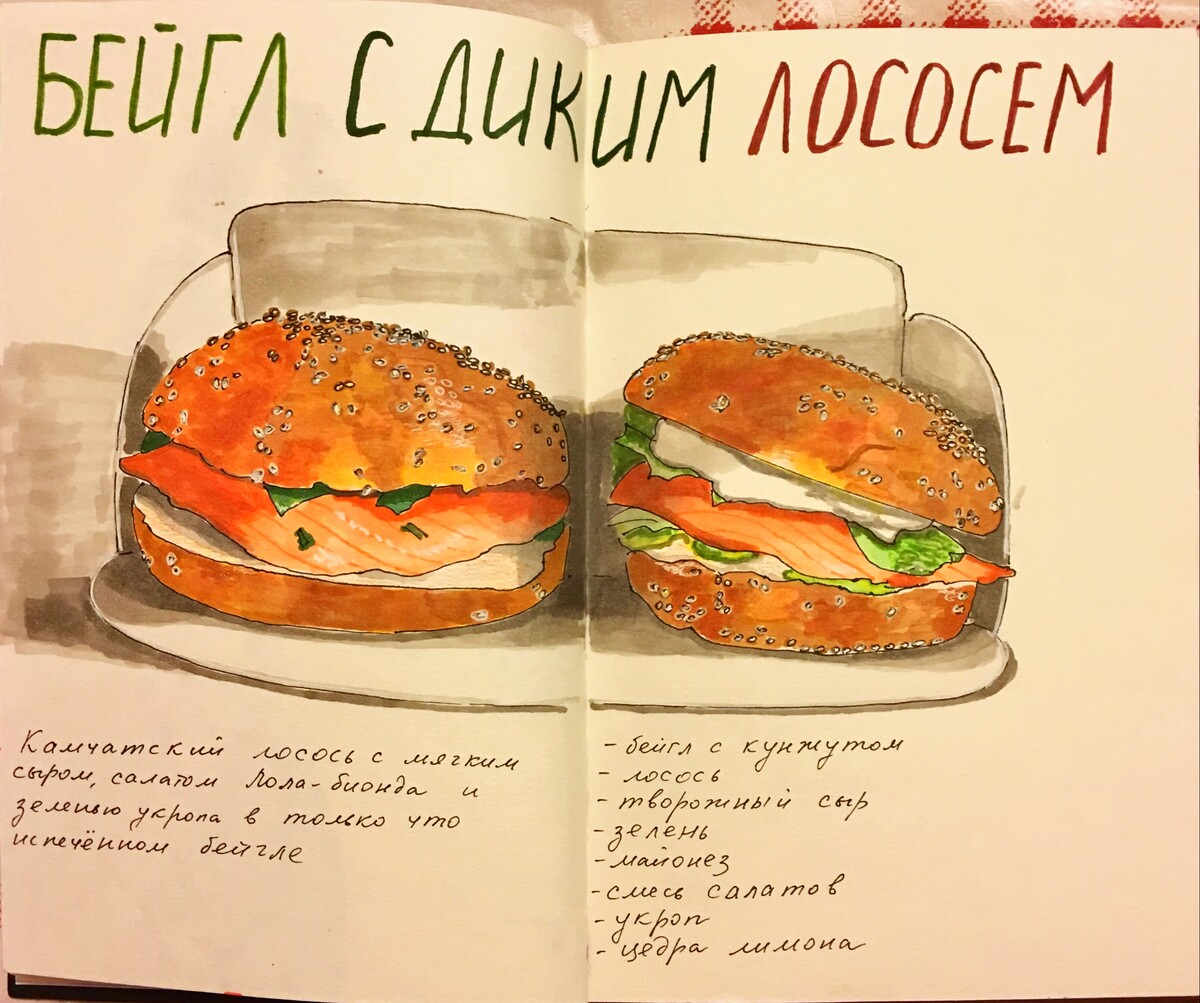 БЕЙГЛ С ДИКИМ ЛОСОСЕМ
Камчатский лосось с мягким
сыром, салатом Лола-бионда и
зеленью укропа в только что
испечённом бейгле
- бейгл с кунжутом
- лосось
- творожный сыр
- зелень
- майонез
- смесь салатов
- укроп
- цедра лимона